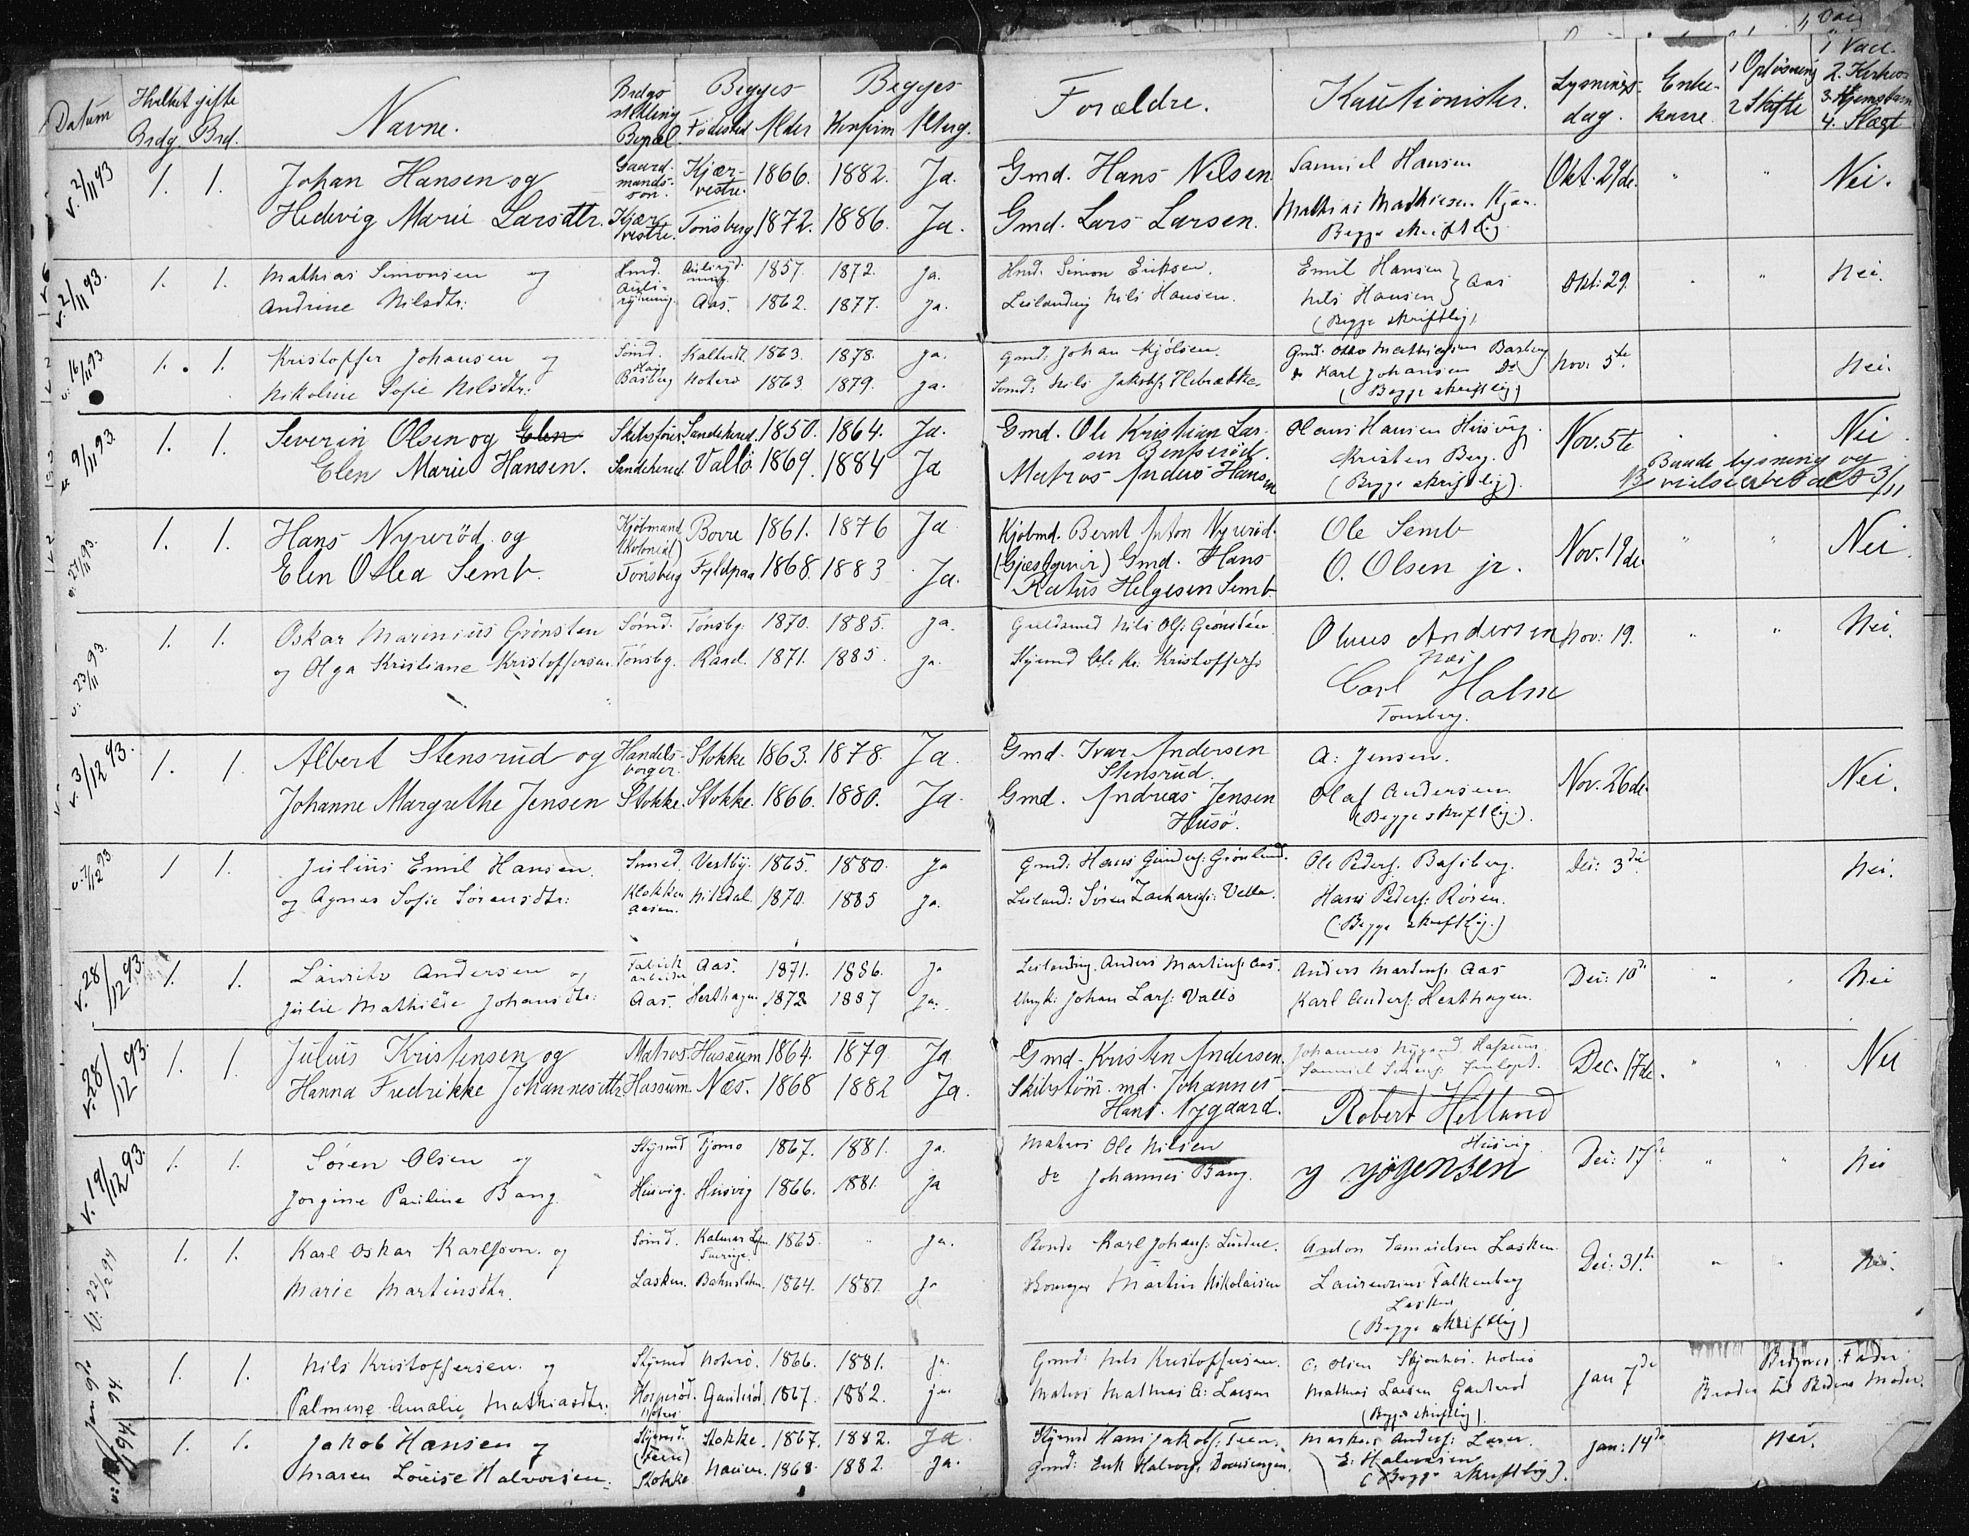 Datum
Hvilket gifte
Brdg. Brd.
Navne.
Brdgs stilling Bopæl.
Begges
Fødested Alder
Begges
Konfirm Altrg.
Forældre.
Kautionister.
Lysnings-dag.
Enke-kasse.
1 Opløsning
2 Skifte
1 Vacc.
3 Hjemstavn
4. Slægt
v. 2/11 93 1. 1. Johan Hansen og Gaard-mands-søn. Kjær-vestre. 1866. 1882. Ja. Gmd. Hans Nilsen Samuel Hansen Okt. 29de. " " Nei.
Hedevig Marie Larsdtr. Kjær vestre. Tønsberg 1872. 1886. Ja. Gmd. Lars Larsen. Mathias Mathiesen Kjær.
Begge skriftlig.
v. 2/11 93. 1. 1. Mathias Simonsen og 1857. 1872. Ja. Simon Eriksen. Emil Hansen } Aas Okt: 29. " Nei.
Andrine Nilsdtr. Aas. 1862. 1877. ja. Leilænding Nils Hansen. Nils Hansen
(Begge skriftlig)
v. 16/11 93 1. 1. Kristoffer Johansen og Sømd. 1863. 1878. ja. Gmd. Johan Kjølsen. Gmd. Otto Mathiesen Basberg Nov: 5te Nei.
Nikoline Sofie Nilsdtr: Basberg Noterø 1863. 1879. ja. Sømd: Nils Jakobs: & Karl Johansen Do
(Begge skriftlig)
v. 9/11 93. 1. 1. Severin Olsen og Elen Skibsfører Sandeherred. 1850. 1864. Ja. Gmd. Ole Kristian Lar-sen Olaus Hansen Husvig. Nov. 5te . . Nei
Elen Marie Hansen. Sandeherred. Vallø 1869. 1884 Ja Matros Anders Hansen Kristen Berg.
(Begge skriftlig).
Baade lysning og
v. 27/11 93. 1. 1. Hans Nyrerød og Kjøbmand (Kolonial) Borre 1861. 1876 Ja Kjøbmd. Bernt Anton Nyrerød. Ole Semb Nov. 19de " " Nei.
Elen Otlea Semb. Tønsberg Fyldpaa 1868. 1883 Ja. (Gjæstgiver) Gmd. Hans O. Olsen jr.
Ratus Helgesen Semb
v: 23/11 93 1. 1. Oskar Marinius Grønsten Sømd. Tønsbg. 1870. 1885. ja. Guldsmed Nils Ols: Grønsten Olaus Andersen Nov: 19. " " Nei.
og Olga Kristiane Kristoffersen. Tønsbg. Raael. 1871. 1885. ja. Skjømd Ole Kr. Kristoffers:
Carl Holm
Tønsberg.
v. 3/12 93. 1. 1. Albert Stensrud og Handels-borger. Stokke 1863. 1878. Ja. Gmd. Ivar Andersen A: Jensen. Nov. 26de. Nei.
Stensrud.
Johanne Margrethe Jensen Stokke. Stokke. 1866. 1880. Ja. Gmd. Andreas Jensen Olaf Andersen
Husø. (Begge skriftlig).
v. 7/12 93. 1 1. Julius Emil Hansen. Smed. Vestby. 1865. 1880. ja Gmd: Hans Ole Peders: Basberg. Dec: 3die Nei.
og Agnes Sofie Sørensdtr: Klokkeraasen. 1870. 1885 ja. Leiland: Søren Zacharis: Velle. Hans Peders: Rosen.
(Begge skriftlig.)
v. 28/12 93. 1. 1. Lauritz Andersen og Fabrik arbeider Aas. 1871. 1886. ja Leilænding. Anders Martins: Aas. Anders Martins: Aas Dec: 10de " . Nei
Julie Mathilde Johansdtr: Aas. Herthagen 1872 1887 ja. Johan Lars: Vallø Karl Anders: Herthagen.
v. 28/12 93. 1. 1. Julius Kristensen og Matros. Hassum 1864. 1879. Ja Gmd. Kristen Andersen. Johannes Nygaard Hassum. Dec. 17de. " " Nei
Hanna Fredrikke Johannesdtr Hassum. Næs. 1868 1882 Ja. Skibstøm. md. Johannes
Hans. Nygaard. Robert Helland
v. 19/12 93. 1. 1. Søren Olsen og Skjømd Tjømø 1867. 1881. ja. Matros Ole Nilsen Husvig Dec: 17de " " Nei
Jorgine Pauline Bang. Husvig. Husvig 1866. 1881. ja do Johannes Bang. y yøgensen
v: 22/2 94 1. 1. Karl Oskar Karlsson. og Sømd. Kalmar Len Sverige 1865. " ja. Bonde Karl Johans: Anton Samuelsen Lasken Dec: 31te " " Nei.
Marie Martinsdtr. Lasken. 1864. 1881. ja Martin Nikolaisen Laurentius Falkenberg
Lasken
(Begge skriftlig)
1. 1. Nils Kristoffersen. og Skjømd Noterø. 1866. 1881. ja. Gmd: Nils Kristoffersen. O. Olsen Noterø Jan 7de Brdgoms Fader
Palmine Amalie Mathiasdtr. 1867. 1882. ja Matros Mathias A: Larsen Mathias Larsen Broder til Brdens Moder.
(Begge skriftlig).
1. 1. Jakob Hansen og Skjømd. Stokke. 1867. 1882. Ja. Skjømd Hans Jakobs: Markus Anders: Jan: 14de Nei.
Maren Louise Halvorsen. Stokke 1868. 1882. ja. Gmd: Erik Halvors: E: Halvorsen
(Begge skriftlig).